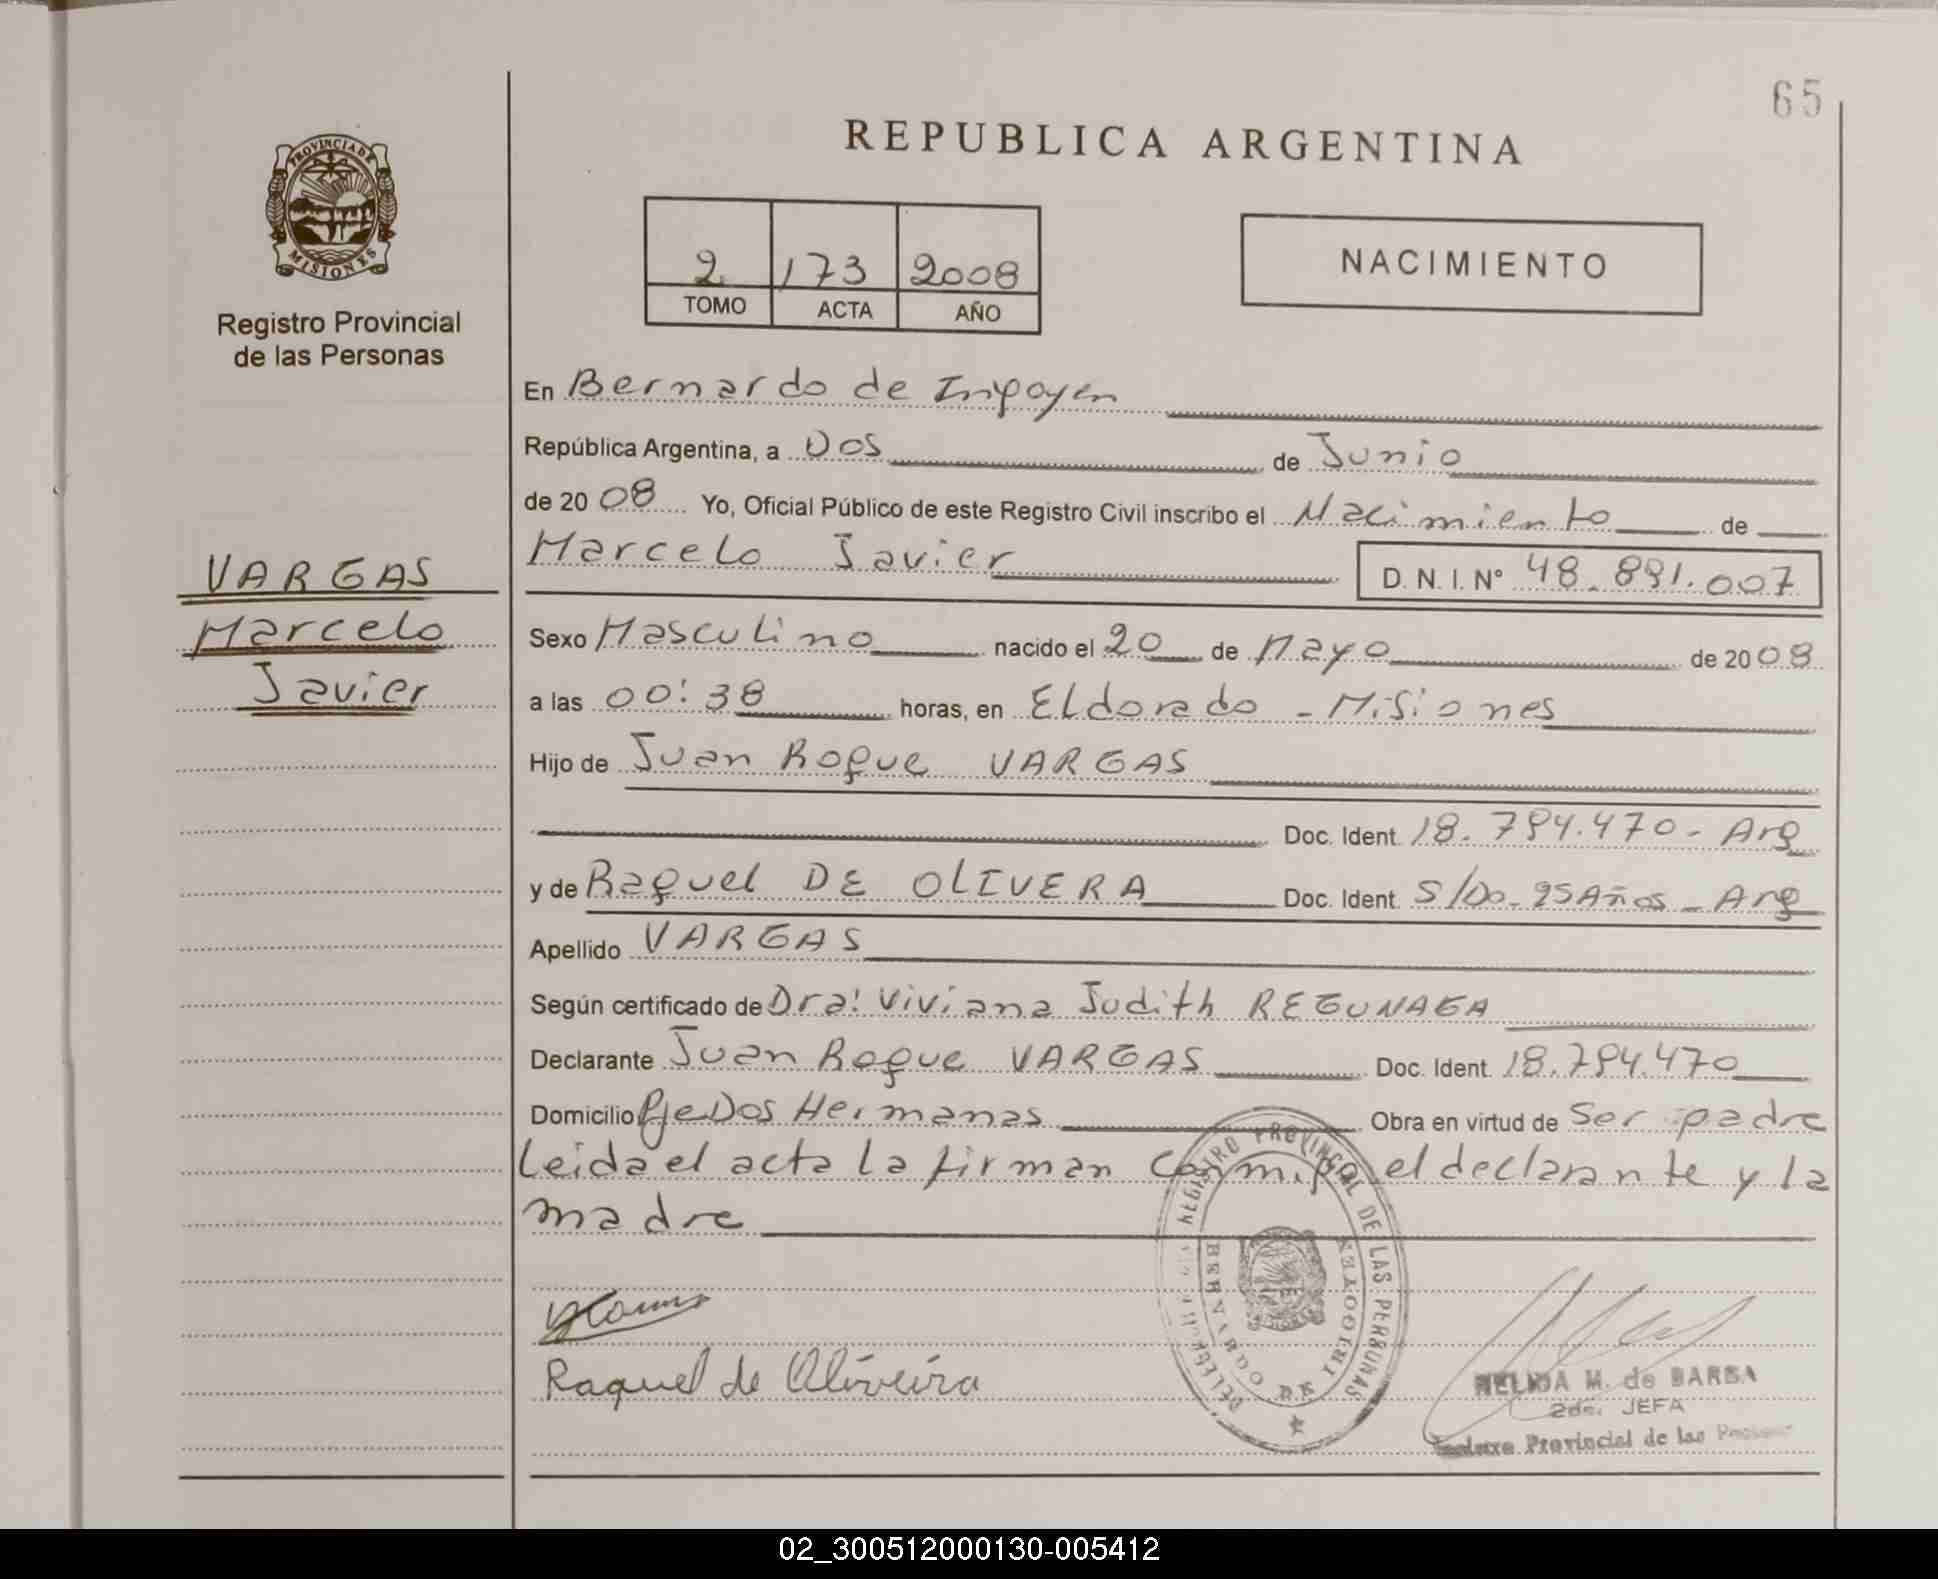 65
REPUBLICA ARGENTINA
PROVINCIA DE
MISIONES
Registro Provincial
de las Personas
2 173 2008
TOMO ACTA AÑO
NACIMIENTO
En Bernardo de Irigoyen
República Argentina, a Dos de Junio
de 2008 Yo, Oficial Público de este Registro Civil inscribo el Nacimiento de
Marcelo Javier D. N. I. Nº 48.891.007
VARGAS
Marcelo
Javier
Sexo Masculino nacido el 20 de Mayo de 2008
a las 00:38 horas, en Eldorado - Misiones
Hijo de Juan Roque VARGAS
Doc. Ident. 18.794.470 - Arg
y de Raquel DE OLIVERA Doc. Ident. S/Do - 25 Años - Arg
Apellido VARGAS
Según certificado de Dra: Viviana Judith REGUNAGA
Declarante Juan Roque VARGAS Doc. Ident. 18.794.470
Domicilio Pje Dos Hermanas Obra en virtud de Ser padre
Leida el acta la firman conmigo el declarante y la
madre
REGISTRO PROVINCIAL DE LAS PERSONAS
BERNARDO DE IRIGOYEN
Raquel de Oliveira
NELIDA M. de BARBA
2da. JEFA
Provincial de las
02_300512000130-005412